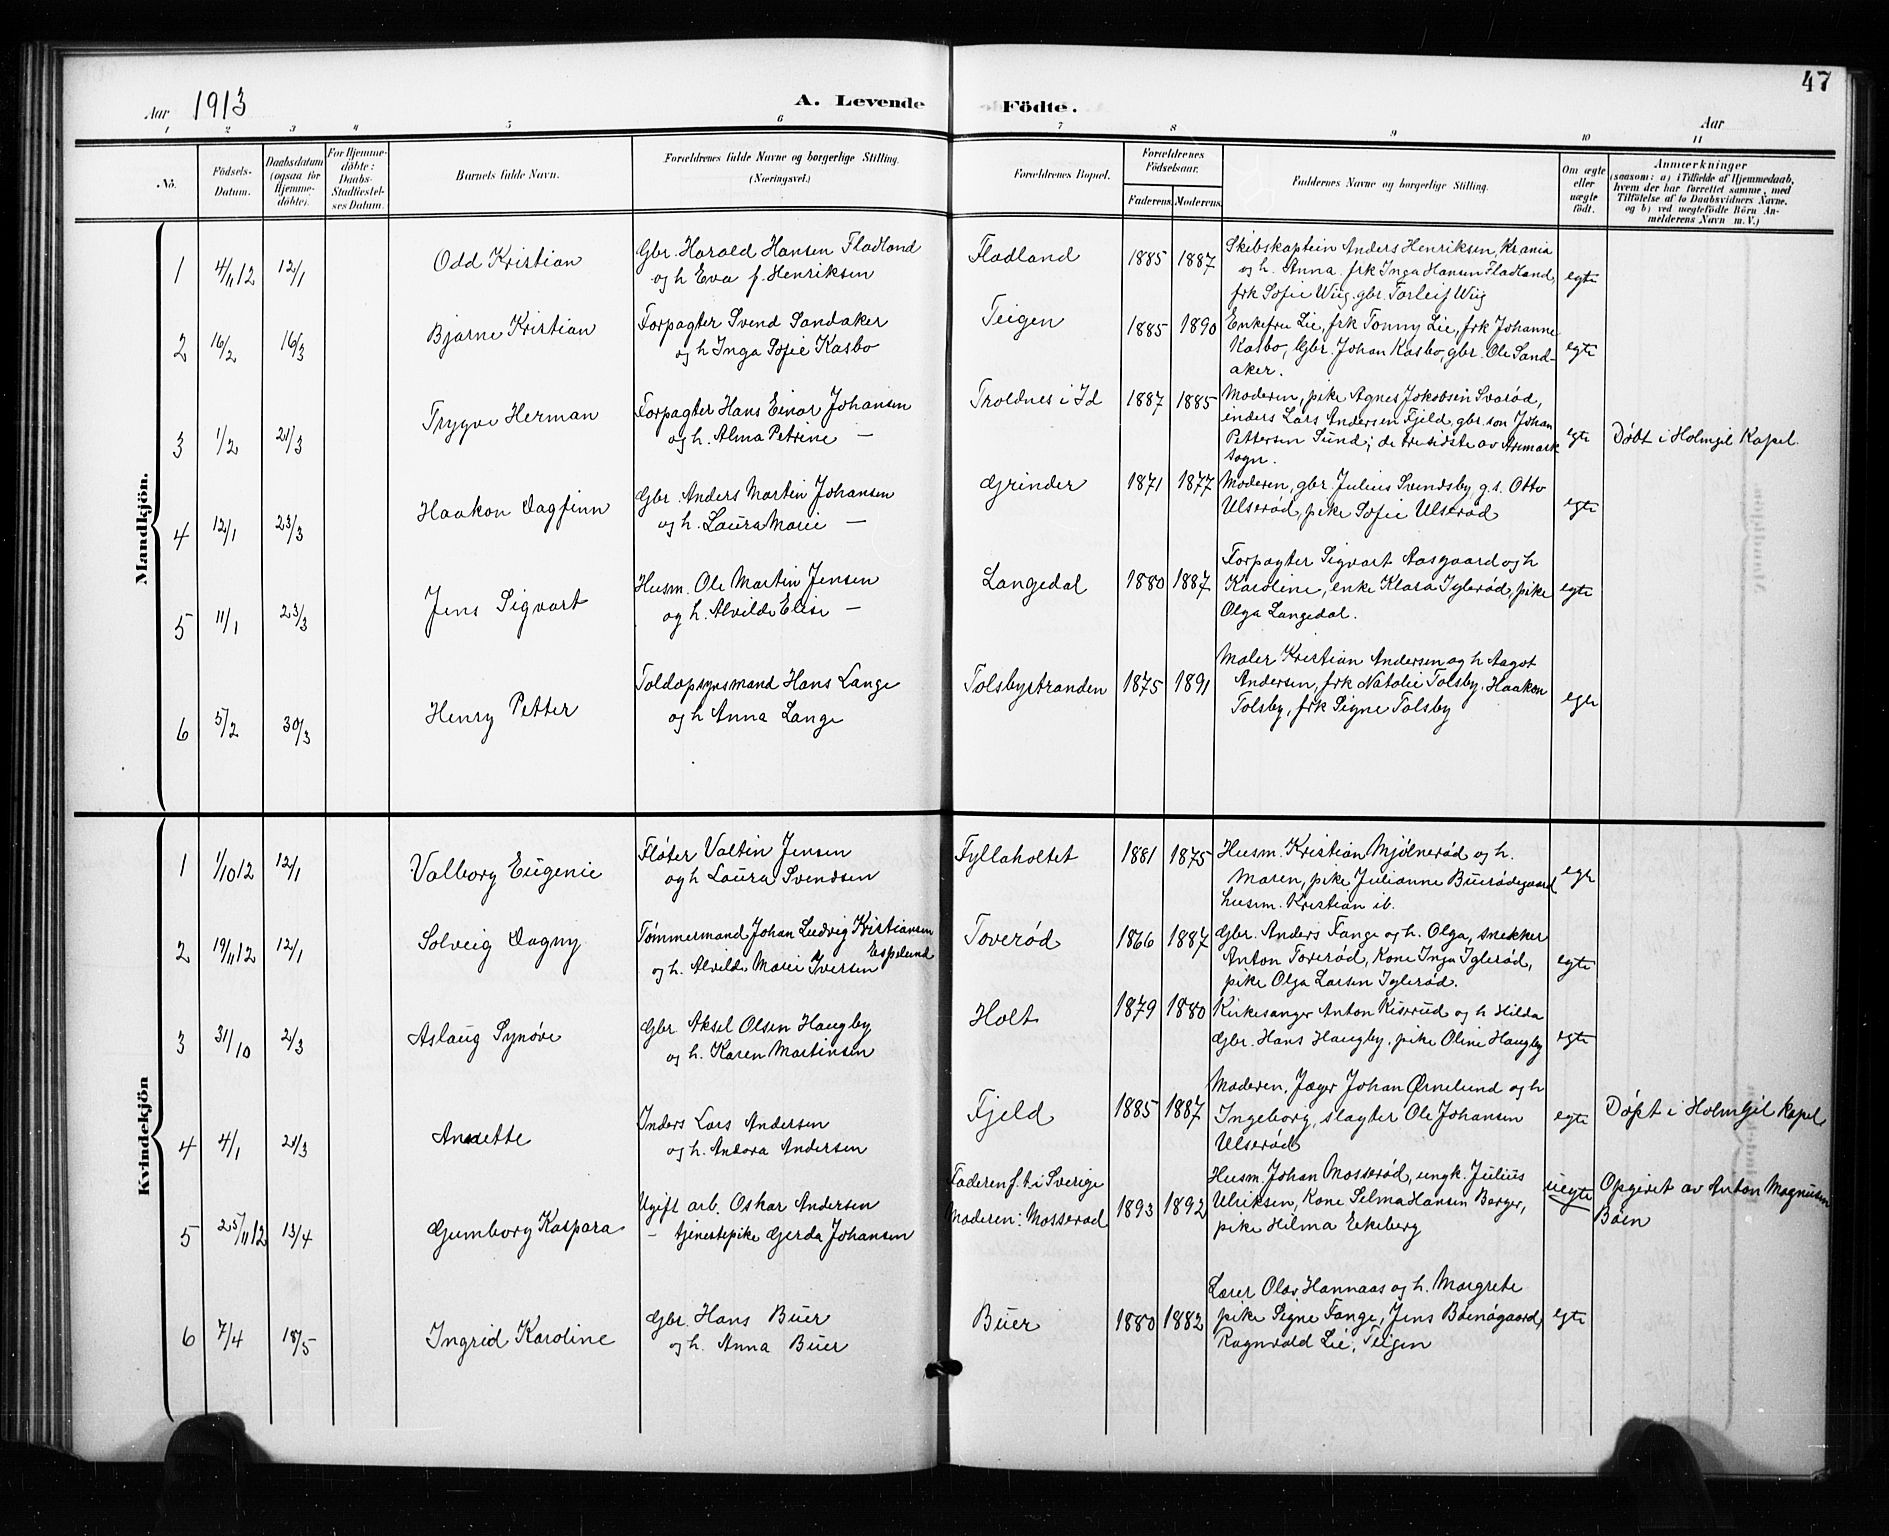 47
Aar 1913
A. Levende Födte.
Aar
1 2 3 4 5 6 7 8 9 10 11
No.
Födsels-Datum.
Daabsdatum (ogsaa for Hjemme-döbte).
For Hjemme-döbte: Daabs-Stadfæstel-ses Datum.
Barnets fulde Navn.
Forældrenes fulde Navne og borgerlige Stilling.
(Næringsvei.)
Forældrenes Bopæl.
Forældrenes Födselsaar.
Faderens. Moderens.
Faddernes Navne og borgerlige Stilling.
Om ægte eller uægte födt.
Anmærkninger
(saasom: a) i Tilfælde af Hjemmedaab,
hvem der har forrettet samme, med
Tilföielse af to Daabsvidners Navne.
og b) ved uægtefödte Börn An-
melderens Navn m. V.)
Mandkjön.
1 4/11 12 12/1 Odd Kristian
Gbr. Harald Hansen Fladland
og h Eva f. Henriksen
Fladland 1885 1887
Skibskaptein Anders Henriksen, Krania
og h. Anna. frk Inga Hansen Fladland,
frk Sofie Wiig. gbr. Torleif Wiig
egte
2 16/2 16/3 Bjarne Kristian
Forpagter Svend Sandaker
og h Inga Sofie Kasbo
Teigen 1885 1890
Enkefru Lie, frk Tonny Lie, frk Johanne
Kasbo, Gbr. Johan Kasbo, gbr. Ole Sand-
aker.
egte
3 1/2 21/3 Trygve Herman
Forpagter Hans Einar Johansen
og h. Alma Petrine —
Troldnes i Id 1887 1885
Moderen, pike Agnes Jakobsen Svarød,
inders Lars Andersen Fjeld, gbr. søn Johan
Pettersen Sund; de tre sidste av Aremark
sogn.
egte
Døbt i Holmgil Kapel.
4 12/1 23/3 Haakon Dagfinn
Gbr. Anders Martin Johansen
og h. Laura Marie —
Grinder 1871 1877
Moderen, gbr. Julius Svendsby g.s. Otto
Ulserød, pike Sofie Ulserød
egte
5 11/1 23/3 Jens Sigvart
Husm. Ole Martin Jensen
og h. Alvilde Elise —
Langedal 1880 1887
Forpagter Sigvart Aasgaard og h
Karoline, enke Klara Iglerød, pike
Olga Langedal.
egte
6 5/2 30/3 Henry Petter
Toldopsynsmand Hans Lange
og h Anna Lange
Tolsbystranden 1875 1891
Maler Kristian Andersen og h Aagot
Andersen, frk Natalie Tolsby, Haakon
Tolsby, frk Signe Tolsby
egte
Kvindekjön
1 1/10 12 12/1 Valborg Eugenie
Fløter Valtin Jensen
og h Laura Svendsen
Fyllaholtet 1881 1875
Husm. Kristian Mjølnerød og h.
Maren, pike Julianne Buerødegaard
husm. Kristian ib.
egte
2 19/11 12 12/1 Solveig Dagny
Tømmermand Johan Ludvig Kristiansen
Espelund
og h. Alvilde Marie Iversen
Toverød 1866 1887
Gbr. Anders Fange og h. Olga, snekker
Anton Toverød, Kone Inga Iglerød,
pike Olga Larsen Iglerød.
egte
3 31/10 2/3 Aslaug Synøve
Gbr. Aksel Olsen Haugby
og h. Karen Martinsen
Holt 1879 1880
Kirkesanger Anton Kiserud og h Hilda
Gbr. Hans Haugby, pike Oline Haugby
egte
4 4/1 21/3 Annette
Inders Lars Andersen
og h. Andora Andersen
Fjeld 1885 1887
Moderen, Jæger Johan Ørnelund og h
Ingeborg, slagter Ole Johansen
Ulserød
egte
Døpt i Holmgil Kapel
5 25/11 12 13/4 Gunborg Kaspara
Ugift arb. Oskar Andersen
— tjenestepike Gerda Johansen
Faderen f. t. i Sverige
Moderen: Mosserød 1893 1892
Husm. Johan Mosserød, ungk. Julius
Ulriksen, Kone Selma Hansen Berger,
pike Hilma Ekeberg
uegte
Opgivet av Anton Magnusen
Bøen
6 7/4 18/5 Ingrid Karoline
Gbr. Hans Buer
og h. Anna Buer
Buer 1880 1882
Lærer Olav Hannaas og h. Margrete
pike Signe Fange, Jens Bøenøgaard,
Ragnvald Lie, Teigen
egte